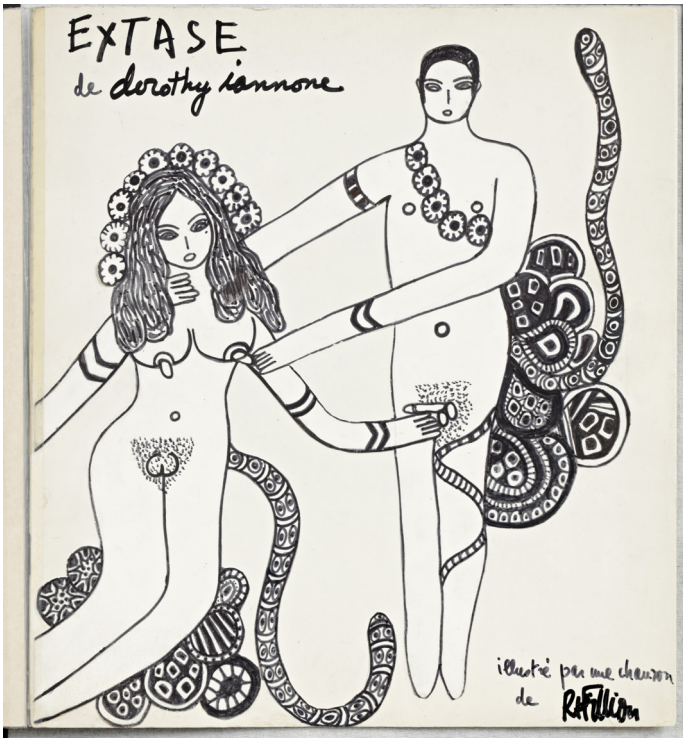 EXTASE
de dorothy iannone
illustré par une chanson
de R. Fillion